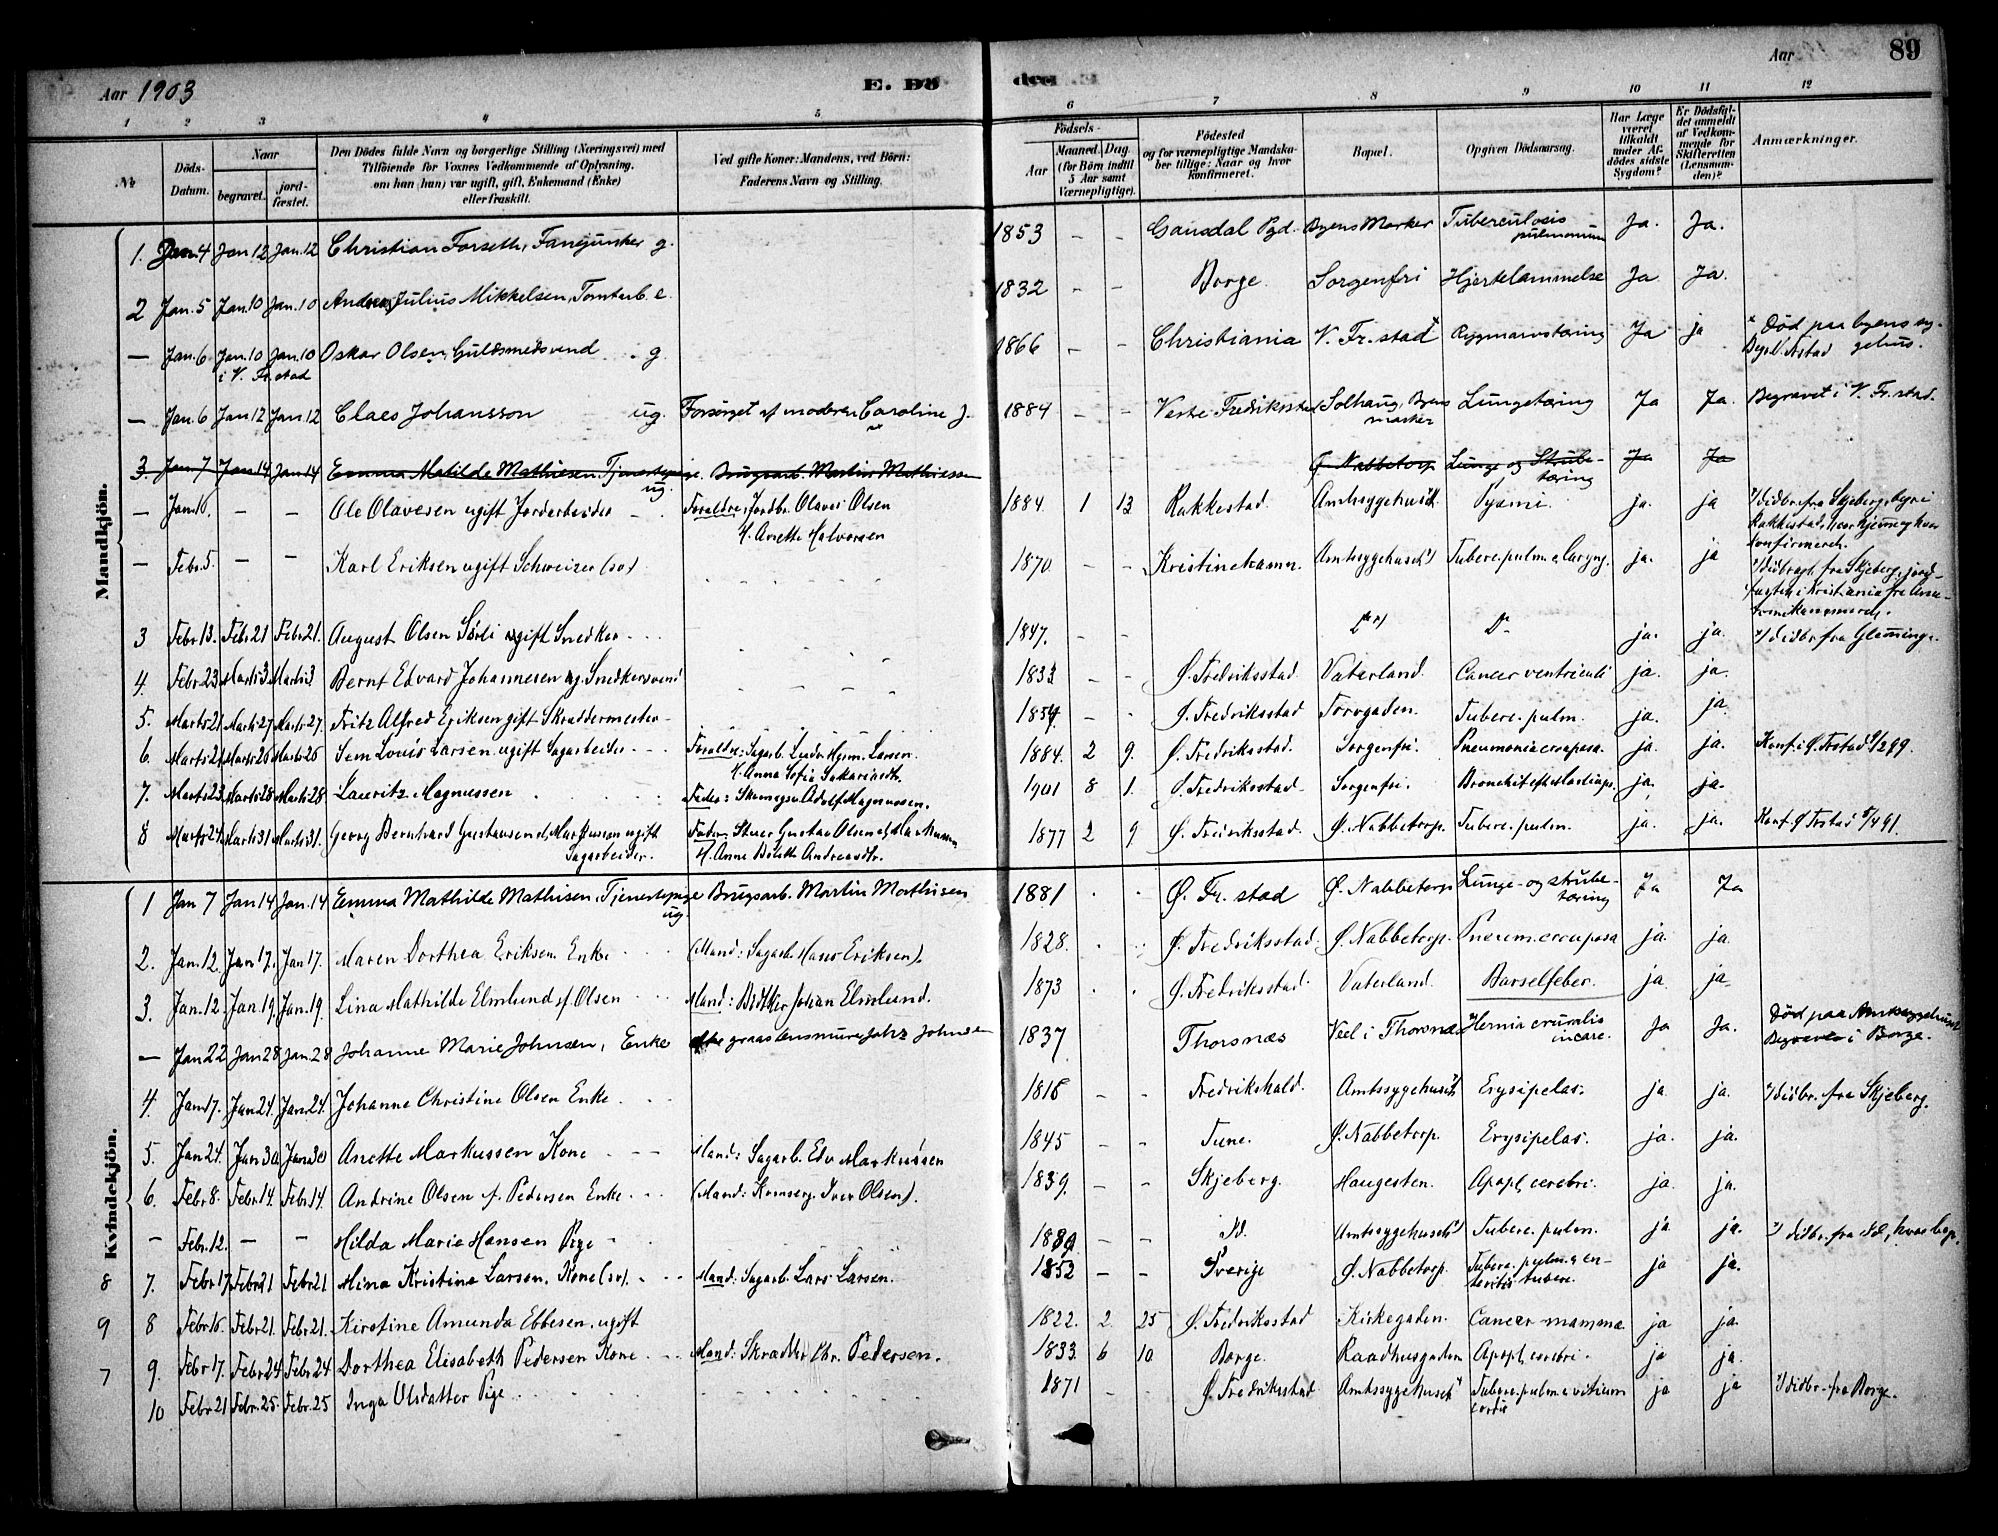 Aar 1903 E. Dö
de Aar 89
1 2 3 4 5 6 7 8 9 10 11 12
No Döds-Datum. Naar begravet. jordfæstet. Den Dödes fulde Navn og borgerlige Stilling (Næringsvei) med Tilföiende for Voxnes Vedkommende af Oplysning, om han (hun) var ugift, gift, Enkemand (Enke) eller fraskilt. Ved gifte Koner: Mandens, ved Börn: Faderens Navn og Stilling. Födsels- Aar Maaned. Dag. (for Börn indtil 5 Aar samt Værnepligtige). Födested og for værnepligtige Mandskaber tillige: Naar og hvor konfirmeret. Bopæl. Opgiven Dödsaarsag. Har Læge været tilkaldt under Afdödes sidste Sygdom? Er Dödsfaldet anmeldt af Vedkommende for Skifteretten (Lensmanden)? Anmærkninger.
Mandkjön.
1. Jan. 4 Jan 12 Jan. 12 Christian Forseth, Fanejunker g. 1853 - - Gausdal Pgd. Byens Marker Tuberculosis pulmonum Ja. Ja.
2 Jan. 5 Jan. 10 Jan. 10 Andreas Julius Mikkelsen, Tomtarb. e. 1832 - - Borge. Sorgenfri Hjertelammelse Ja Ja.
— Jan. 6 Jan. 10 Jan. 10 i V. Fr.stad Oskar Olsen, Guldsmedsvend g. 1866 - - Christiania V. Fr.stad x Rygmarvstæring Ja ja x Död paa byens sygehus. Begr. V. Frstad
— Jan. 6 Jan 12 Jan. 12 Claes Johansson ug. Forsörget af moderen Caroline J. 1884 - - Vestre Fredriksstad Solhaug, Byens marker Lungetæring Ja Ja. Begravet i V. Fr.stad.
3. Jan. 7 Jan 14 Jan 14 Emma Matilde Mathiesen Tjenestepige. ug. Brugsarb. Martin Mathiesen Ø. Nabbetorp Lunge og Strubetæring Ja Ja
— Jan. 10. — — Ole Olavesen ugift Jordarbeider - Foraldre: Jordbr. Olaves Olsen H. Anette Halvorsen 1884. 1 13 Rakkestad. Amtssygehuset Pyæmi. ja. ja 1/ didbr. fra Skjeberg, byri Rakkestad, hvor hjemme og hvor konfirmeret.
— Febr. 5. — — Karl Eriksen ugift Schweizer (sv.) 1870 - - Kristinehamn. Amtssygehuset 1) Tuberc. pulm. & laryng. ja. ja 1/ didbragt fra Skjeberg, jordfæstet i Kristiania
3 Febr. 13. Febr 21 Febr 21. August Olsen Sörli ugift Snedker 1847. - - Do 1) Do ja. ja. 1/ didbr. fra Glemminge.
4. Febr. 23. Marts 3. Marts 3 Bernt Edvard Johannesen g. Snedkersvend 1833 - - Ø. Fredriksstad. Vaterland. Cancer ventriculi ja. ja.
5. Marts 21 Marts 27 Marts 27. Fritz Alfred Eriksen gift Skräddermester 1854 - - Ø. Fredriksstad Torvgaden. Tuberc. pulm. ja. ja.
6. Marts 21. Marts 26 Marts 26 Sem Louis Larsen ugift Sagarbeider - - - Foraldre: Sagarb. Ludv. Hjrm. Larsen H. Anna Sofie Sakariasdtr. 1884. 2 9. Ø. Fredriksstad. Sorgenfri. Pneumonia crouposa. ja. ja. Konf. i Ø. Frstad 1/2 99.
7. Marts 23. Marts 28 Marts 28 Lauritz Magnussen Fader: Skomagersv. Adolf Magnussen. 1901 8 1. Ø. Fredriksstad. Sorgenfri. ja. ja.
8 Marts 24. Marts 31 Marts 31. Georg Bernhard Gustavsen el. Markussen ugift Sagarbeider. Fader: Stuer Gustav Olsen H. Anne Bolette Andreasdtr. 1877 2 9 Ø. Fredriksstad. Ø. Nabbetorp. Tuberc. pulm. ja. ja. Konf. Ø. Frstad 91.
Kvindekjön.
1 Jan 7 Jan 14 Jan. 14 Emma Mathilde Mathisen, Tjenestepige ug. Brugsarb. Martin Mathisen 1881 . . Ø. Fr. stad Ø. Nabbetorp Lunge- og strubetæring Ja Ja
2. Jan. 12. Jan 17. Jan 17. Maren Dorthea Eriksen Enke (Mand: Sagarb. Hans Eriksen). 1828. . . Ø. Fredriksstad. Ø. Nabbetorp. Pneum. crouposa ja. ja.
3. Jan. 12. Jan. 19. Jan. 19. Lina Mathilde Elmlund f. Olsen Mand: Bödker Johan Elmlund. 1873 . . Ø. Fredriksstad. Vaterland. Barselfeber. ja. ja.
— Jan 22 Jan 28 Jan. 28 Johanne Marie Johnsen, Enke Johnsen 1837 Thorsnæs Veel i Thorsnæs Hernia cruralis incarc. Ja Ja. Död paa Amtssygehuset Begraves i Borge.
4. Jan 17. Jan 24. Jan 24. Johanne Christine Olsen Enke 1816 - - Fredrikshald. Amtssygehuset 1) Erysipelas. ja ja. 1/ didbr. fra Skjeberg.
5. Jan 24. Jan 30 Jan 30 Anette Markussen Kone Mand: Sagarb. Edv Markussen 1845 - - Tune. Ø. Nabbetorp. Erysipelas. ja. ja.
6. Febr 8. Febr. 14. Febr 14. Andrine Olsen f. Pedersen Enke (Mand: Iver Olsen). 1839. - - Skjeberg. Haugesten. Apopl. cerebri. ja ja.
— Febr. 12. — — Hilda Marie Hansen Pige 1889. - - Id. Amtssygehuset 1) Tuberc. pulm. ja ja. 1/ didbr. fra Id, hvor begr.
8 7. Febr 17. Febr 21 Febr 21 Mina Kristine Larsen, Kone (sv). Mand: Sagarb. Lars Larsen. 1852 - - Sverige Ø. Nabbetorp. Tuberc. pulm. & enteritis tuberc. ja ja.
9 8 Febr 16. Febr 21. Febr 21. Kirstine Amunda Ebbesen, ugift 1822. 2 25 Ø. Fredriksstad Kirkegaden. Cancer mamma ja ja.
7 9. Febr 17. Febr 24 Febr 24 Dorthea Elisabeth Pedersen Kone Mand: Skrædder Chr. Pedersen. 1833. 6 10 Borge. Raadhusgaden Apopl. cerebri. ja ja.
10 Febr. 21 Febr. 25. Febr. 25 Inga Olsdatter Pige 1871 - Ø. Fredriksstad Amtssygehuset 1) Tuberc. pulm. & vitium cordis ja ja 1/ didbr. fra Borge.